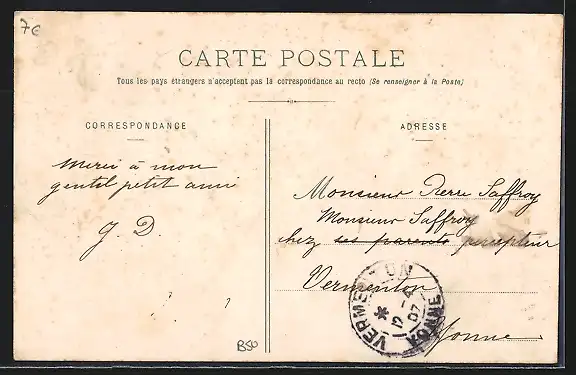 7€
CARTE POSTALE
Tous les pays étrangers n'acceptent pas la correspondance au recto (Se renseigner à la Poste)
CORRESPONDANCE
Merci à mon
gentil petit ami
J. D.
B50
ADRESSE
Monsieur Pierre Saffroy
Monsieur Saffroy
chez ses parents percepteur
Vermenton
Yonne
VERMENTON
YONNE
07